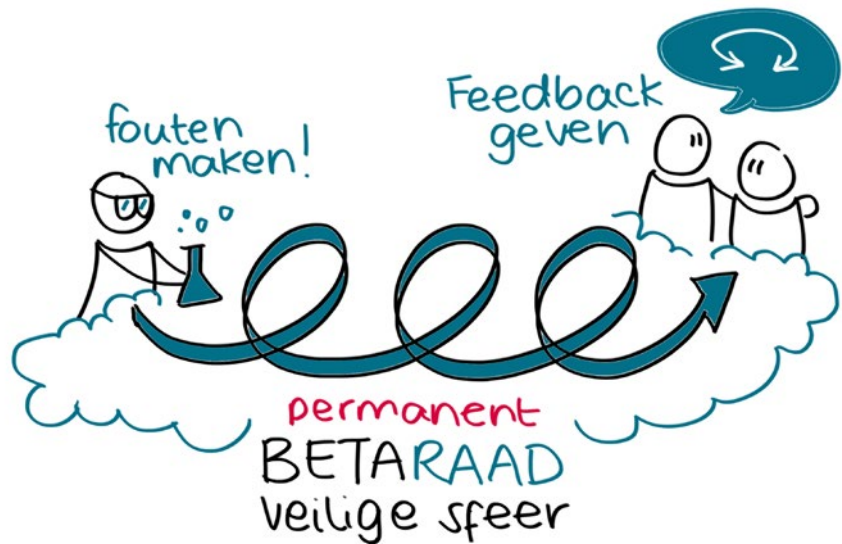 fouten
maken!
Feedback
geven
permanent
BETARAAD
veilige sfeer